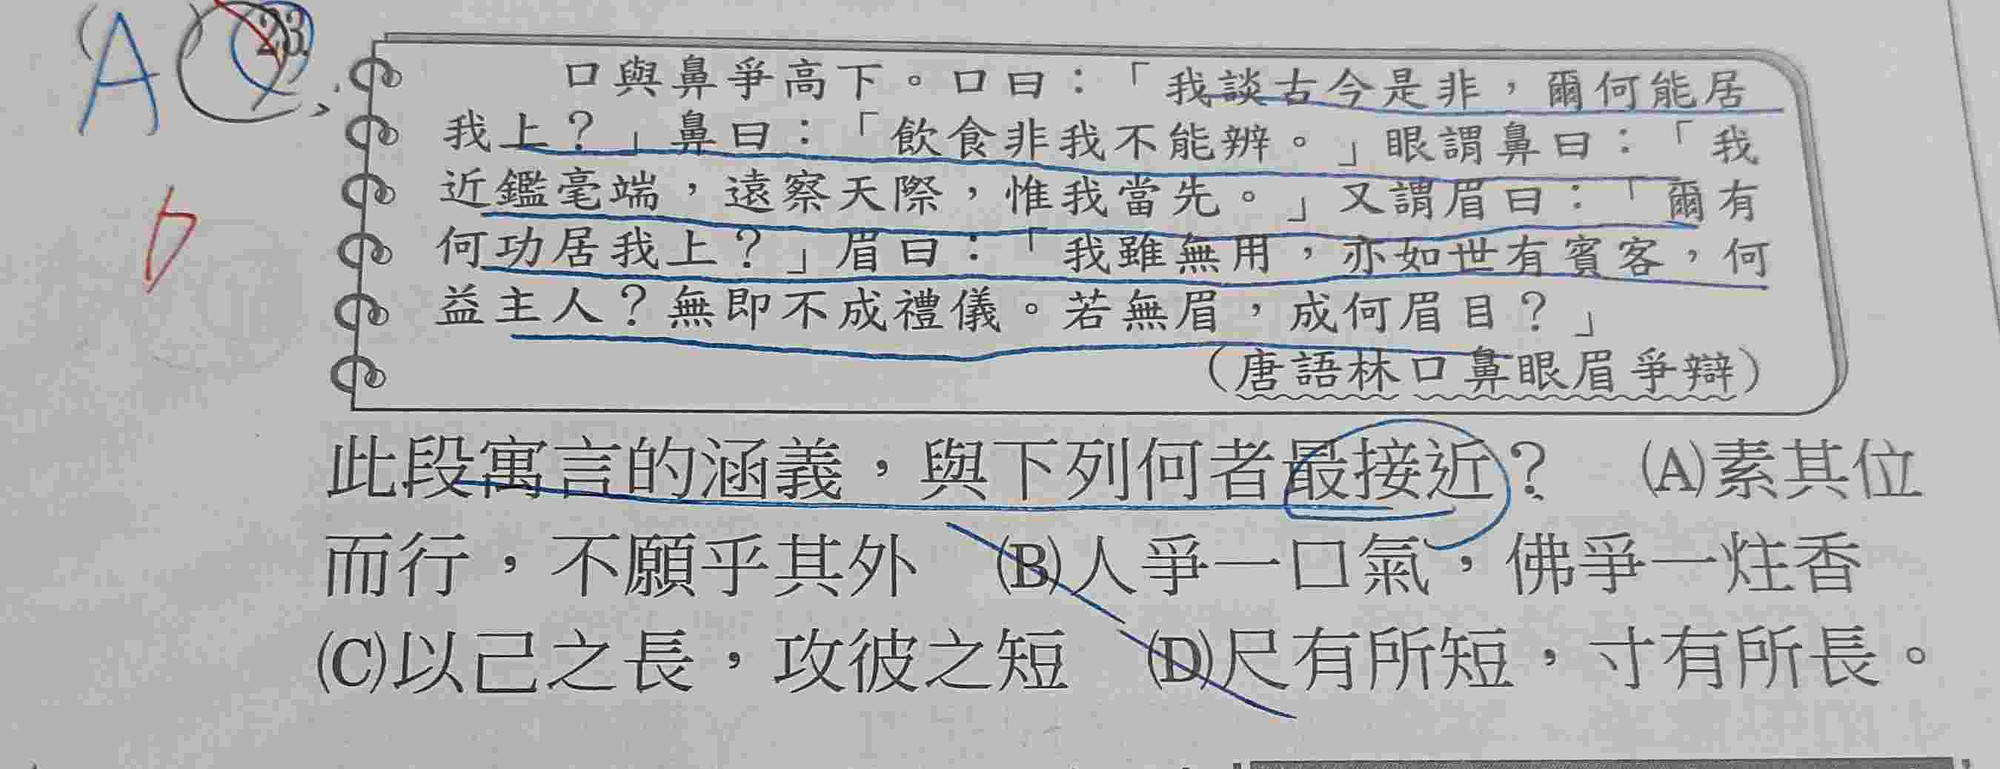 A 23.
口與鼻爭高下。口曰：「我談古今是非，爾何能居
我上？」鼻曰：「飲食非我不能辨。」眼謂鼻曰：「我
近鑑毫端，遠察天際，惟我當先。」又謂眉曰：「爾有
何功居我上？」眉曰：「我雖無用，亦如世有賓客，何
益主人？無即不成禮儀。若無眉，成何眉目？」
（唐語林口鼻眼眉爭辯）
D
此段寓言的涵義，與下列何者最接近？　(A)素其位
而行，不願乎其外　(B)人爭一口氣，佛爭一炷香
(C)以己之長，攻彼之短　(D)尺有所短，寸有所長。